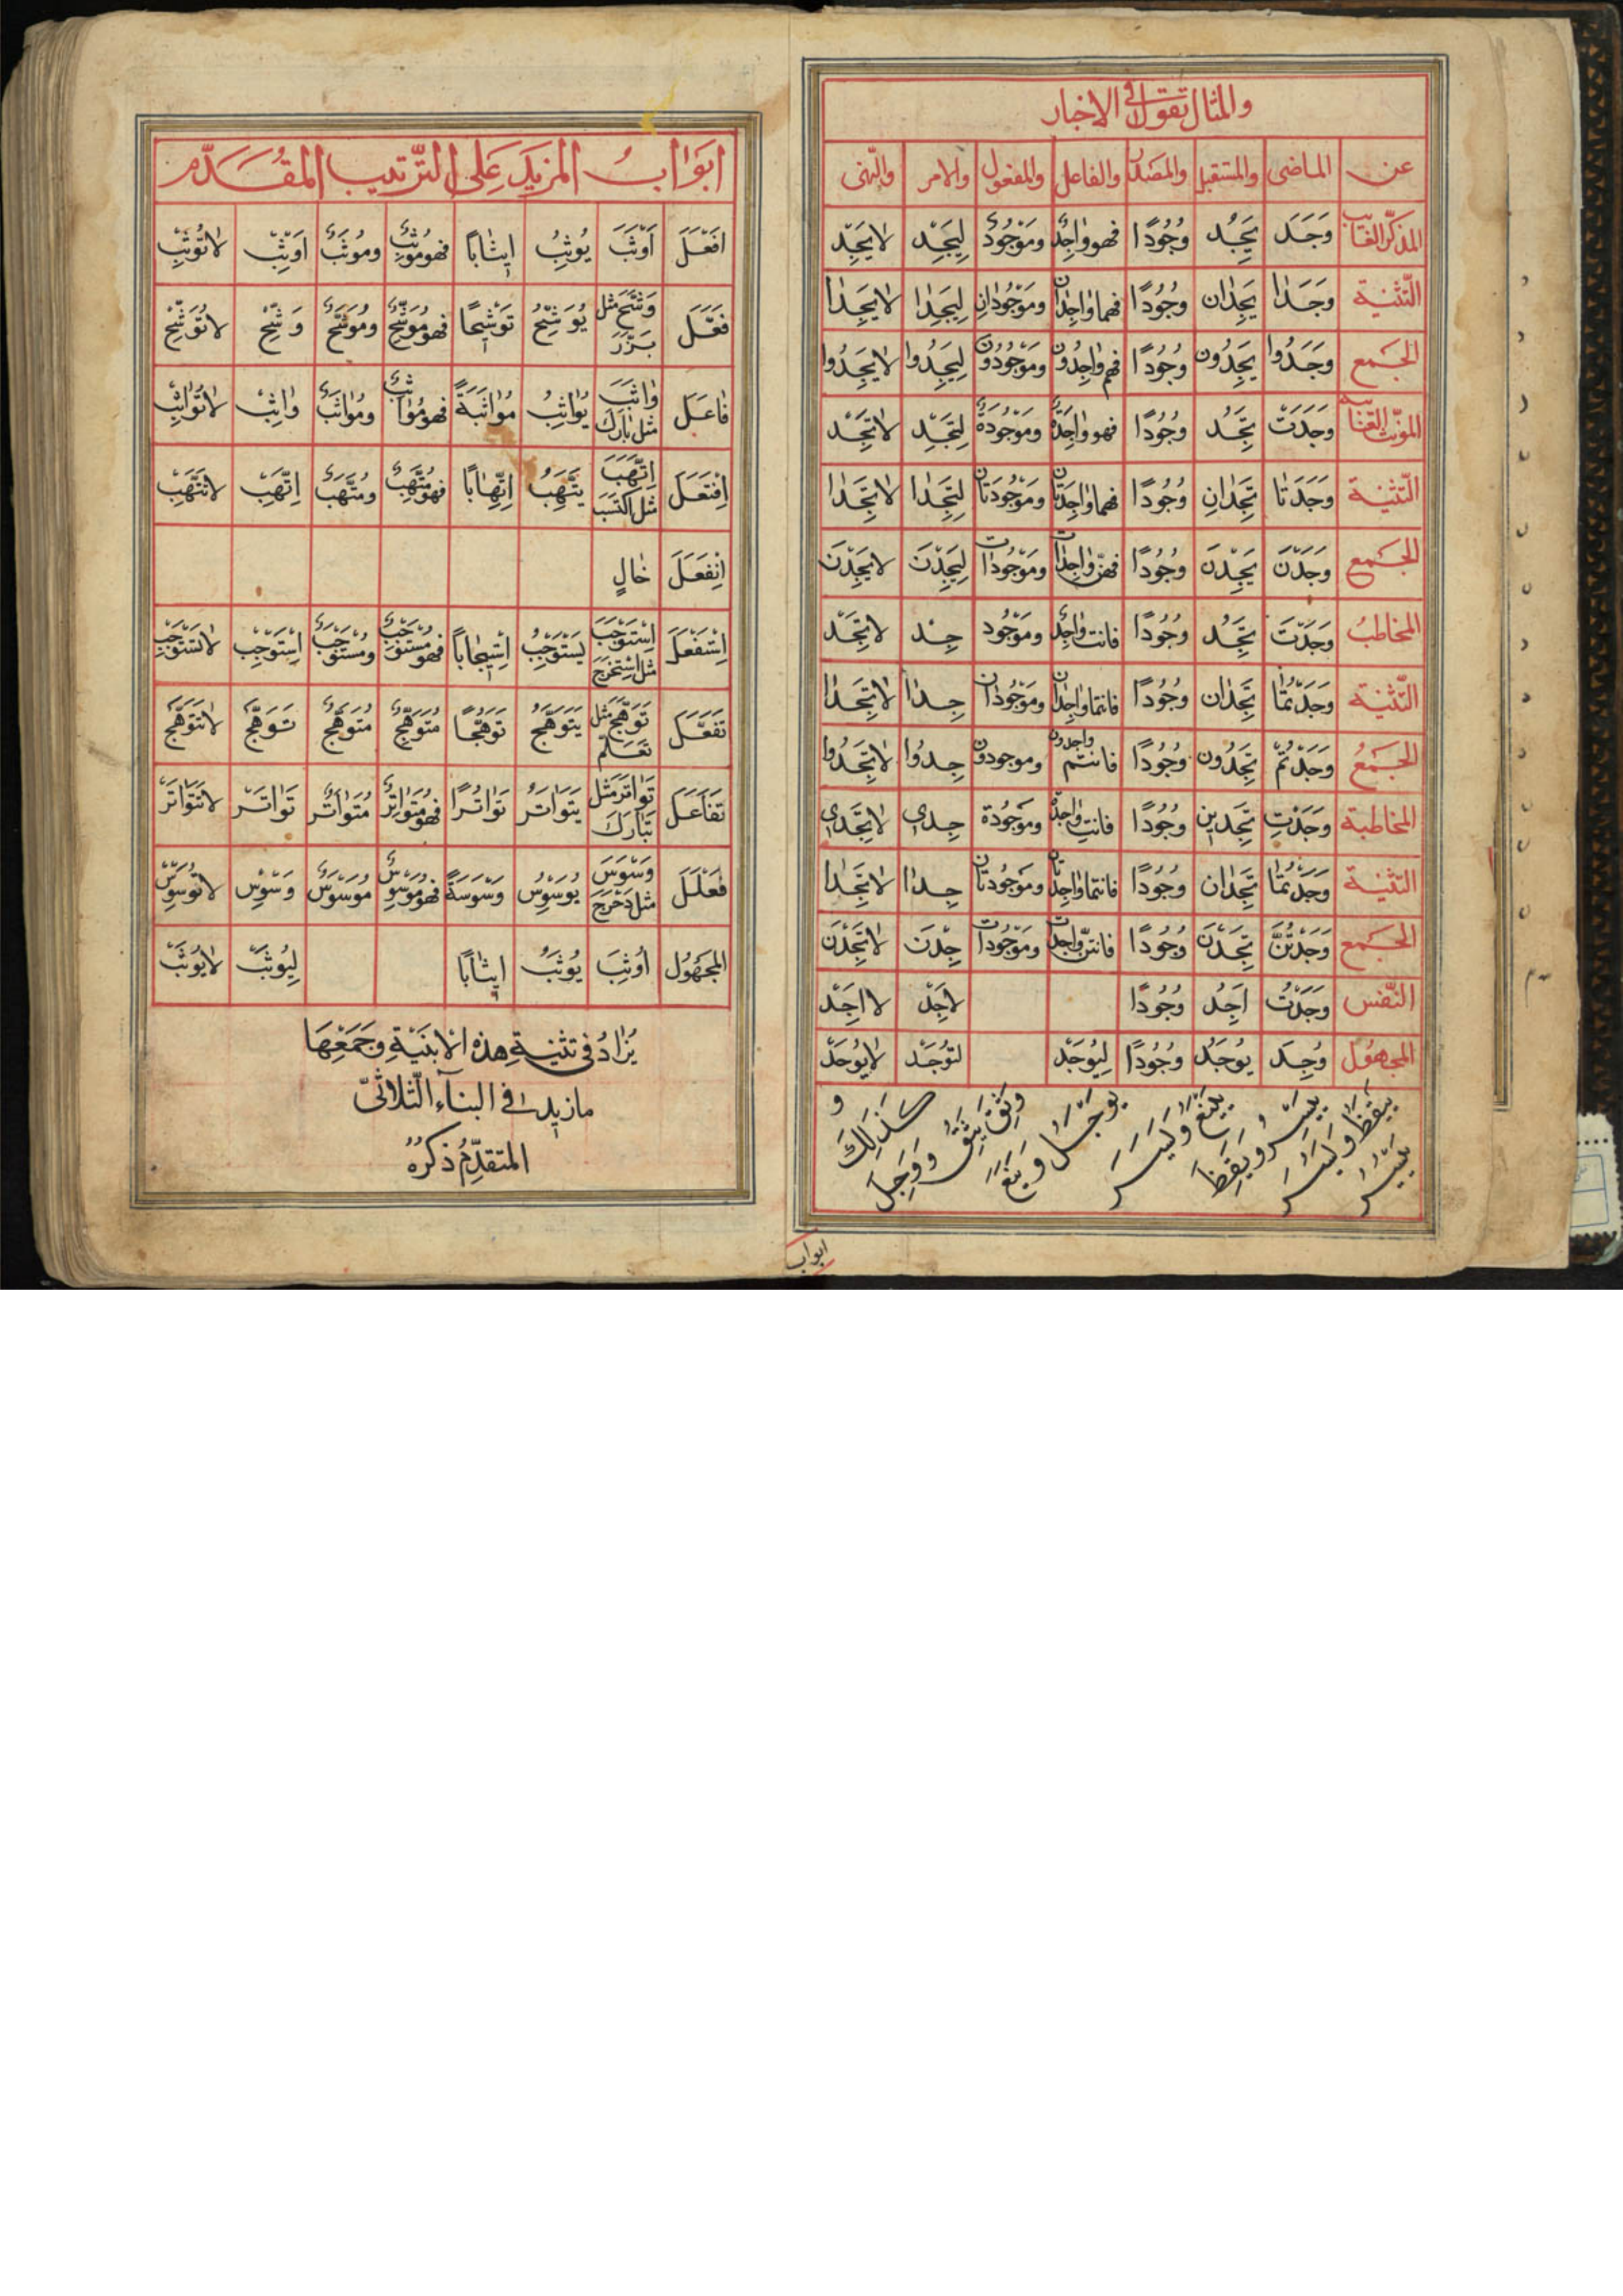 والمثال تقول فى الاخبار
عن الماضى والمستقبل والمصدر والفاعل والمفعول والامر والنهى
المذكر الغايب وَجَدَ يَجِدُ وُجُودًا فهو وٰاجِدٌ ومَوْجُودٌ لِيَجِدْ لا يَجِدْ
التّثنية وَجَدٰا يَجِدٰان وُجُودًا فهما وٰاجِدٰان ومَوْجُودٰانِ لِيَجِدٰا لا يَجِدٰا
الجَمع وَجَدُوا يَجِدُون وُجُودًا فهم وٰاجِدُون ومَوْجُودُون لِيَجِدُوا لا يَجِدُوا
المؤنث الغائبة وَجَدَتْ تَجِدُ وُجُودًا فهو وٰاجِدَةٌ ومَوْجُودَةٌ لِتَجِدْ لا تَجِدْ
التّثنية وَجَدَتٰا تَجِدٰانِ وُجُودًا فهما وٰاجِدَتٰان ومَوْجُودَتٰان لِتَجِدٰا لا تَجِدٰا
الجَمع وَجَدْنَ يَجِدْنَ وُجُودًا فهنّ وٰاجِدٰات ومَوْجُودٰات لِيَجِدْنَ لا يَجِدْنَ
المخاطبُ وَجَدْتَ تَجِدُ وُجُودًا فانت وٰاجِدٌ ومَوْجُود جِدْ لا تَجِدْ
التّثنية وَجَدْتُمٰا تَجِدٰان وُجُودًا فانتما وٰاجِدٰان ومَوْجُودٰان جِدٰا لا تَجِدٰا
الجَمعُ وَجَدْتُمْ تَجِدُون وُجُودًا فانتم واجدون وموجودون جِدُوا لا تَجِدُوا
المخاطبة وَجَدْتِ تَجِدِين وُجُودًا فانتِ وٰاجِدَةٌ ومَوْجُودَة جِدِى لا تَجِدِى
التّثنية وَجَدْتُمٰا تَجِدٰان وُجُودًا فانتما وٰاجِدتٰان ومَوْجُودتٰان جِدٰا لا تَجِدٰا
الجَمع وَجَدْتُنَّ تَجِدْنَ وُجُودًا فانتنّ وٰاجِدٰات ومَوْجُودٰات جِدْنَ لا تَجِدْنَ
النّفس وَجَدْتُ اَجِدُ وُجُودًا لاَجِدْ لا اَجِدْ
المجهُول وُجِدَ يُوجَدُ وُجُودًا لِيُوجَدْ لتُوجَدْ لا يُوجَدْ
و كَذٰلِكَ وَثِقَ يَثِقُ وَوَجِلَ يَوْجَلُ
ابواب
اَبوٰابُ المزيَد عَلى التّرتيب المُقَدَّم
اَفْعَلَ اَوْثَبَ يُوثِبُ اِيثٰاباً فهو مُوثِبٌ ومُوثَبٌ اَوْثِبْ لا تُوثِبْ
فَعَّلَ وَشَّحَ مثل بَزَّرَ يُوَشِّحُ تَوْشِيحًا فهو مُوَشِّحٌ ومُوَشَّحٌ وَشِّحْ لا تُوَشِّحْ
فٰاعَلَ وٰاثَبَ مثل بٰارَكَ يُوٰاثِبُ مُوٰاثَبَةً فهو مُوٰاثِبٌ ومُوٰاثَبٌ وٰاثِبْ لا تُوٰاثِبْ
اِفْتَعَلَ اِتَّهَبَ مثل اكتَسَبَ يَتَّهِبُ اِتِّهٰابًا فهو مُتَّهِبٌ ومُتَّهَبٌ اِتَّهِبْ لا تَتَّهِبْ
اِنْفَعَلَ خٰالٍ
اِسْتَفْعَلَ اِسْتَوْجَبَ مثل استَخْرَجَ يَسْتَوْجِبُ اِسْتِيجٰاباً فهو مُسْتَوْجِبٌ ومُسْتَوْجَبٌ اِسْتَوْجِبْ لا تَسْتَوْجِبْ
تَفَعَّلَ تَوَهَّجَ مثل تَعَلَّمَ يَتَوَهَّجُ تَوَهُّجًا مُتَوَهِّجٌ مُتَوَهَّجٌ تَوَهَّجْ لا تَتَوَهَّجْ
تَفٰاعَلَ تَوٰاتَرَ مثل تَبٰارَكَ يَتَوٰاتَرُ تَوٰاتُرًا فهو مُتَوٰاتِرٌ مُتَوٰاتَرٌ تَوٰاتَرْ لا تَتَوٰاتَرْ
فَعْلَلَ وَسْوَسَ مثل دَحْرَجَ يُوَسْوِسُ وَسْوَسَةً فهو مُوَسْوِسٌ مُوَسْوَسٌ وَسْوِسْ لا تُوَسْوِسْ
المجهُول اُوثِبَ يُوثَبُ اِيثٰابًا لِيُوثَبْ لا يُوثَبْ
يُزٰادُ فى تثنيةِ هذه الاَبْنِيَةِ وجَمْعِهَا
ما زيد فى البنآء الثّلاثىّ
المتقدّمِ ذكرُهُ